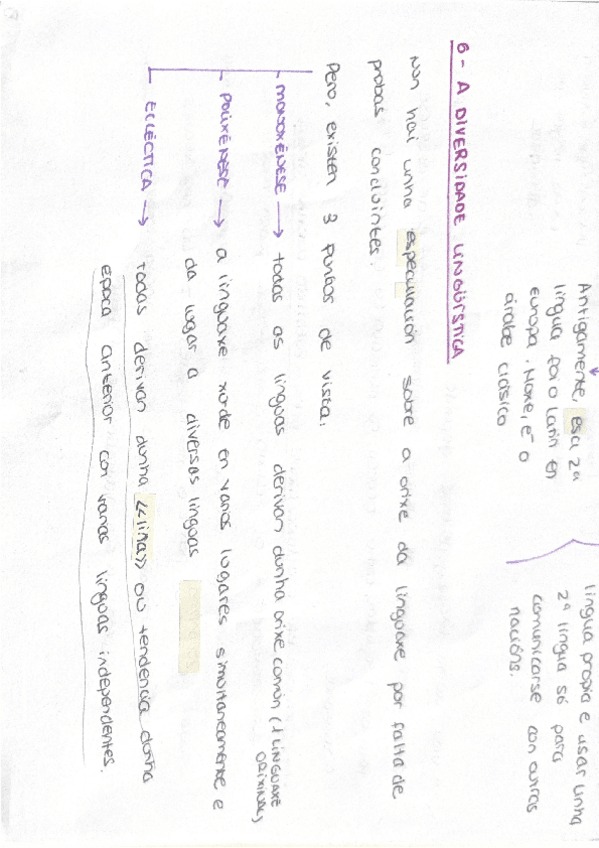 Antigamente, esa 2ª
lingua foi o latín en
Europa. Noxe, é o
árabe clásico
lingua propia e usar unha
2ª lingua só para
comunicarse con outras
nacións.
6- A DIVERSIDADE LINGÜÍSTICA
Non hai unha especulación sobre a orixe da linguaxe por falta de
probas concluintes.
Pero, existen 3 puntos de vista:
MONOXÉNESE → todas as linguas derivan dunha orixe común (1 LINGUAXE
ORIXINAL)
POLIXÉNESE → a linguaxe xurde en varios lugares simultaneamente e
da lugar a diversas linguas
ECLÉCTICA → todas derivan dunha <<liña>> ou tendencia dunha
época anterior con varias linguas independentes.